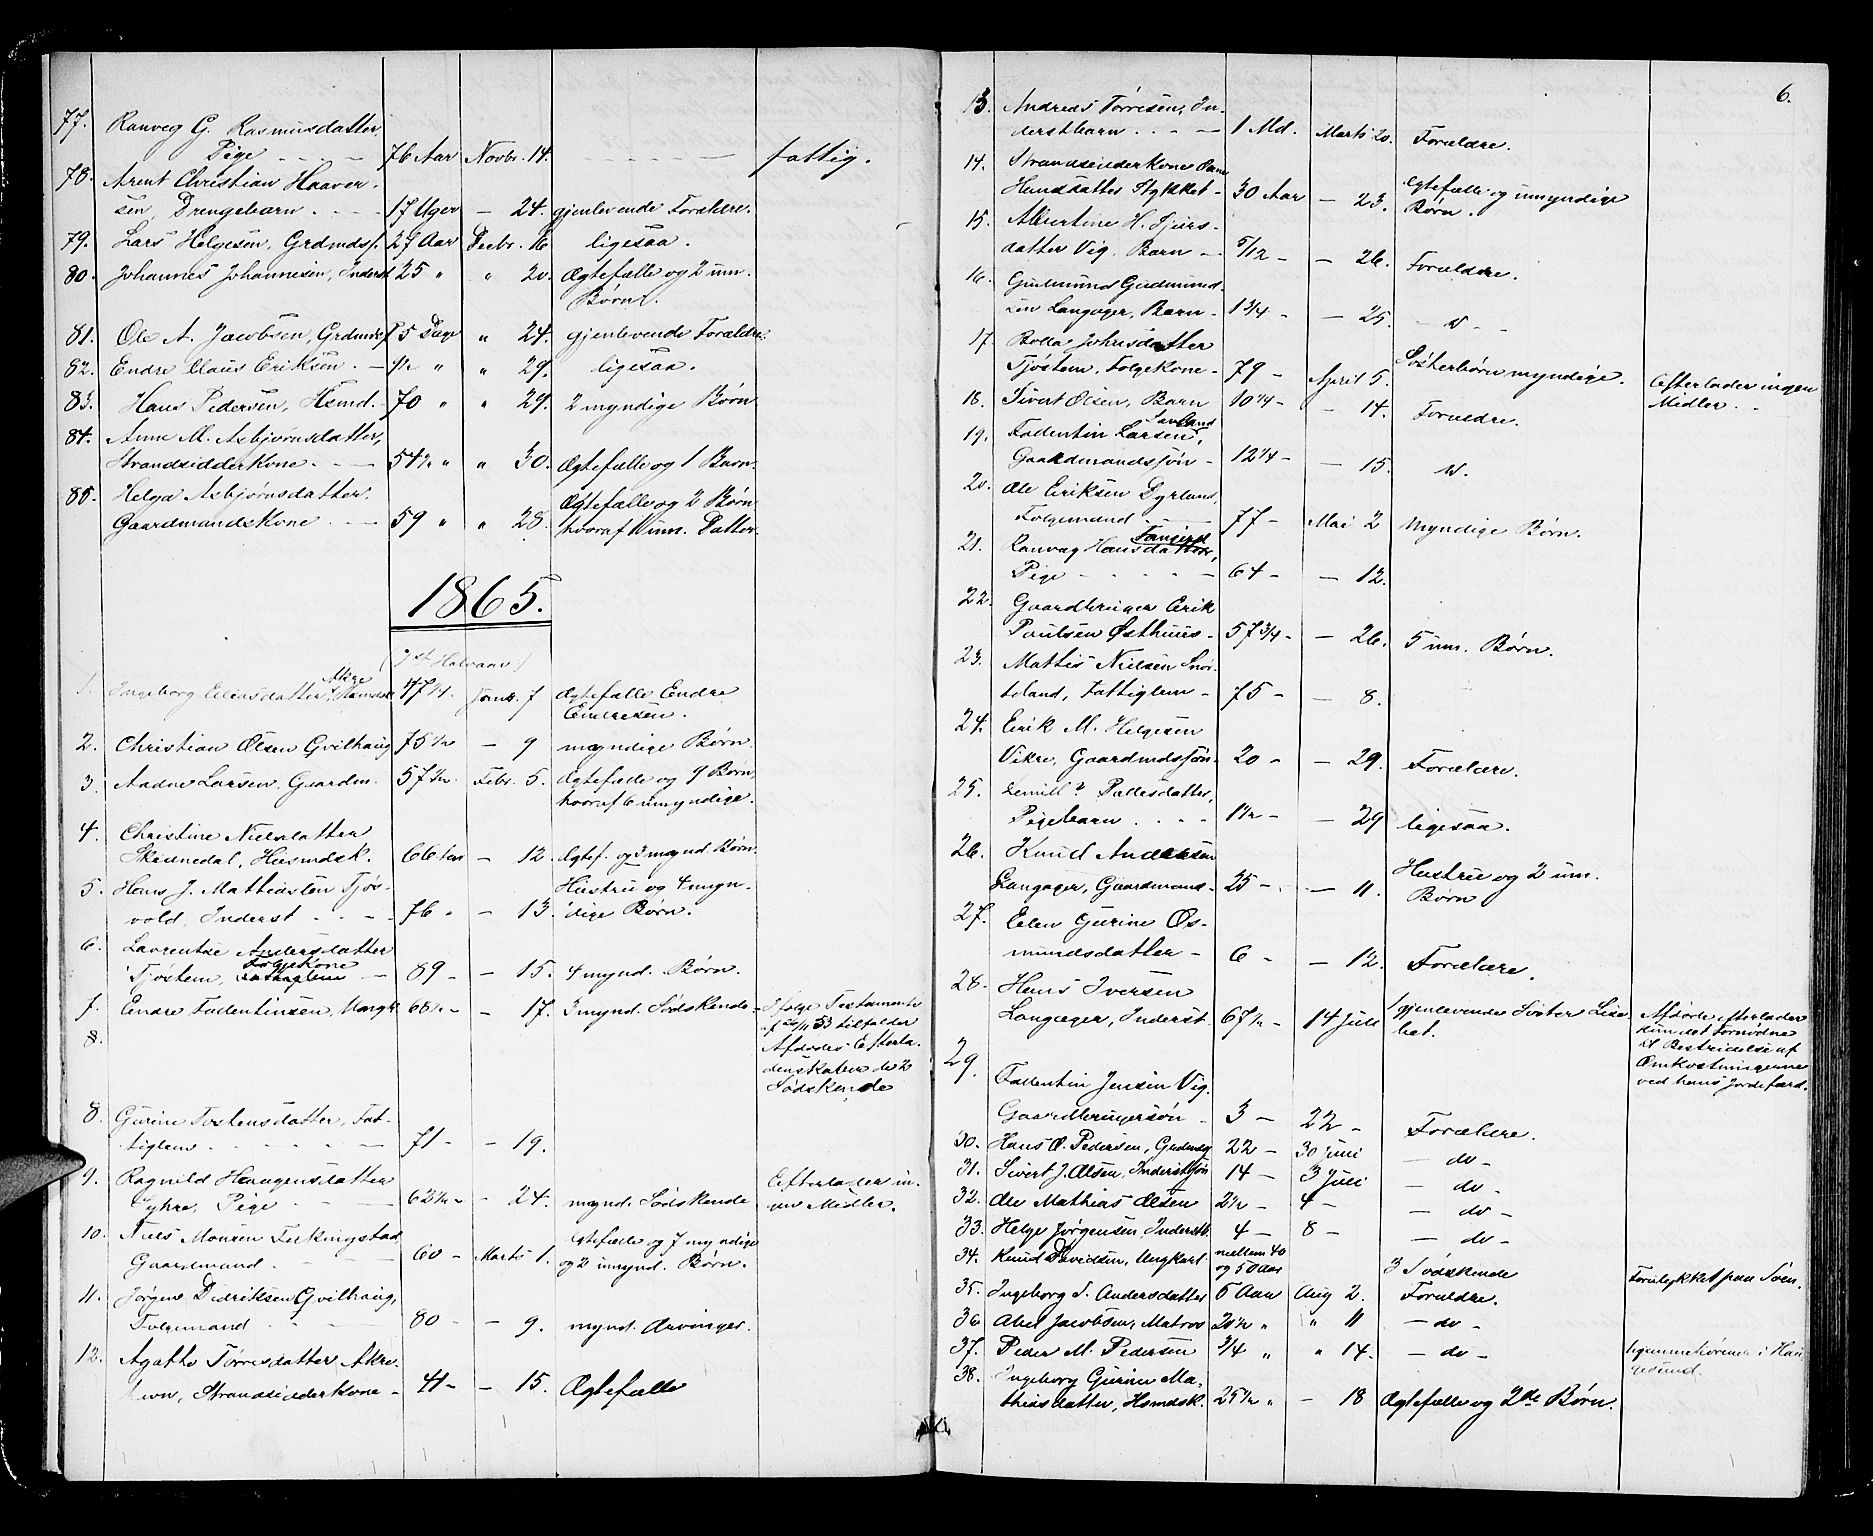 77. Ranveg G. Rasmusdatter,
Pige 76 Aar Novbr. 14. fattig.
78. Arent Christian Haaver-
sen, Drengebarn. 17 Uger - 24. gjenlevende Forældre.
79. Lars Helgesen, Grdmdss. 27 Aar Decbr. 16 ligesaa.
80. Johannes Johannesen, Inderst 25 " " 20. Ægtefælle og 2 um.
Børn.
81. Ole A. Jacobsen, Grdmds 5 Dage " 24. gjenlevende Forældre.
82. Endre Claus Eriksen. - 1/2 " " 29. ligesaa.
83. Hans Pedersen, Hsmd. - 70 " " 29. 2 myndige Børn
84. Anne M. Asbjørnsdatter,
Strandsidderkone. - 54 1/2 " " 30. Ægtefælle og 1 Barn.
85. Helga Asbjørnsdatter. Ægtefælle og 2 Børn
Gaardmandskone - 59 " " 28. hvoraf 1 um. Datter.
1865.
(1st Halvaar)
Akre
1. Ingeborg Eliasdatter, Hsmdsk. 47 1/4. Janr. 7 Ægtefælle Endre
Endresen.
2. Christian Olsen Gvilhaug 75 1/2 - 9 myndige Børn
3. Aadne Larsen, Gaardm. 57 1/2. Febr. 5. Ægtefælle og 9 Børn,
hvoraf 6 umyndige.
4. Christine Nielsdatter
Skeisnedal, Husmdsk. 66 - 12. Ægtef. og 3 mynd. Børn.
5. Hans J. Mathiassen Tjøs- Hustru og 4 myn-
vold, Inderst 76 " - 13. dige Børn.
6. Lavrentse Andersdatter
Folgekone
Tjøstem, 89 - - 15. 4 mynd. Børn.
7. Endre Fallentinsen, Ungk. 68 1/2 - - 17. 3 mynd. Sødskende - Ifølge Testamente
8. af 20/11 53 tilfalder
Afdødes Efterla-
denskaber de 2
Sødskende
8. Gurine Torstensdatter, Fat-
tiglem 71 - - 19.
9. Ragnild Haagensdatter Efterlader in-
Pige 62 1/2 - - 24. mynd. Sødskende gen Midler.
10. Niels Monsen Ferkingstad Ægtefælle og 7 myndige
Gaardmand. 60 - Marts 1. og 2 umynd. Børn.
11. Jørgen Didriksen Gvilhaug,
Folgemand 80 - - 9. mynd. Arvinger.
12. Agathe Torresdatter Akre-
Strandsidderkone - 41 - - 15. Ægtefælle
6.
13. Andreas Torresen, In-
derstbarn 1 Md. Marts 20. Forældre.
14. Strandsidderkone
Stykket - 30 Aar - 23. Ægtefælle og umyndige
Børn.
15. Albertine H. Sjurs-
datter Vig, Barn - 5/12 - - 26. Forældre.
16. Gudmund Gudmund-
sen Langager, Barn - 1 3/4 - - 25. - do -
17. Bolla Johnsdatter
Tjøstem, Folgekone - 79 - April 5. Søsterbørn myndige. Efterlader ingen
Midler.
18. Sivert Olsen, Barn 10 1/4 - - 14. Forældre.
Sævland
19. Fallentin Larsen,
Gaardmandssøn - 12 1/4 - - 15. do.
20. Ole Eriksen Dyrland,
Folgemand 77 - Mai 2 Myndige Børn.
21. Ranvag Hansdatter,
Pige 64 - - 12.
22. Gaardbruger Erik
Paulsen Østhuus - 57 3/4 - - 26. 5 um. Børn.
23. Mattis Nielsen Snør-
teland, Fattiglem - 75 - - 8.
24. Erik M. Helgesen
Vikre, Gaardmdssøn - 20 - - 29. Forældre.
25. Pallesdatter,
Pigebarn 1 1/2 - - 29 ligesaa.
26. Knud Andersen
Langager, Gaardmand - 25 - - 11. Hustru og 2 um.
Børn
27. Elen Gurine Os-
mundsdatter - 6 - - 12. Forældre.
28. Hans Iversen
Langager, Inderst 67 1/2 - 14 Juli 1 gjenlevende Søster Lisa- Afdøde efterlader
bet. kun det Fornødne
til Bestridelse af
Omkostningerne
ved hans Jordefærd.
29. Fallentin Jensen Vig.
Gaardbrugersøn - 3 - 22 - Forældre.
30. Hans O. Pedersen, 22 - 30 Juni - do -
31. Sivert J. Olsen, Inderstsøn 14 - 3 Juli - do -
32. Ole Mathias Olsen 2 1/2 - 4 - - do -
33. Helge Jørgensen Inderstb. 4 - 8 - - do -
34. Knud Davidsen, Ungkarl. mellem 40
og 50 Aar 3 Sødskende Forulykket paa Søen.
35. Ingeborg S. Andersdatter 5 Aar Aug 2. Forældre.
36 Abel Jacobsen, Matros 20 1/2 " " 11 - do -
37. Peder M. Pedersen 3/4 " " 14. - do - hjemmehørende i Hau-
gesund.
38. Ingeborg Gurine Ma-
thiasdatter, Hsmdsk. 25 1/2 " - 18 Ægtefælle og 2de Børn.